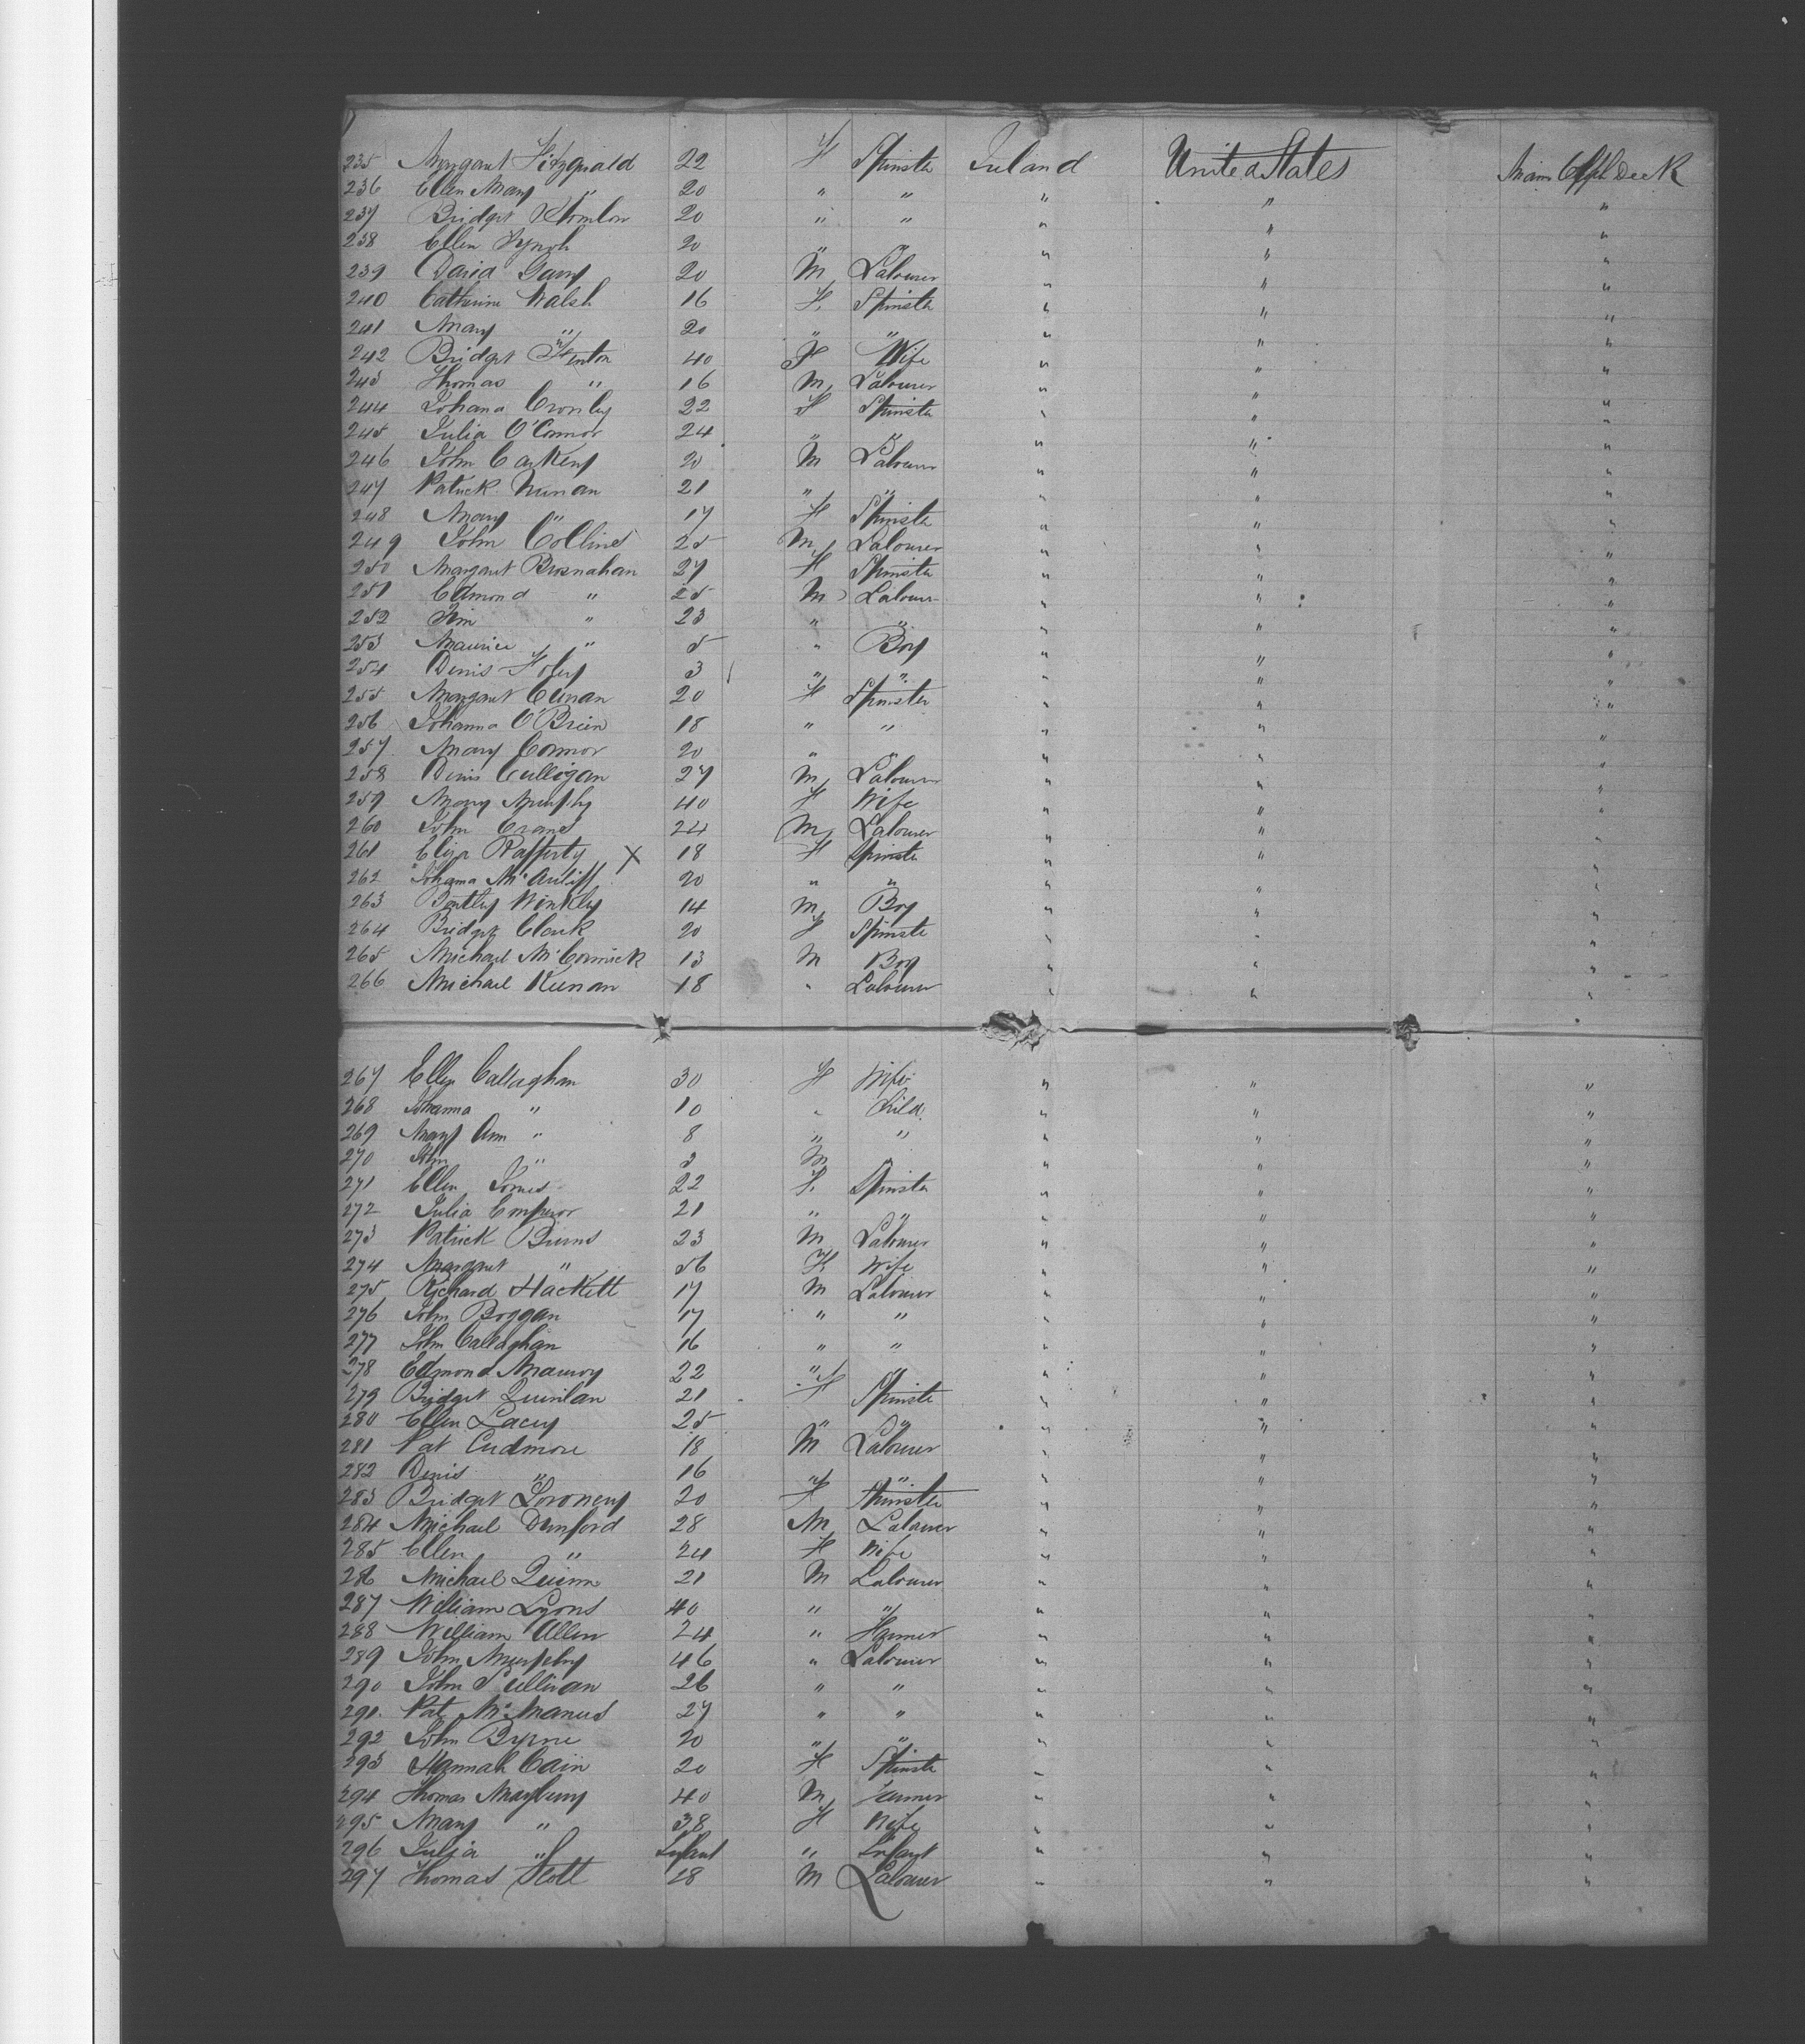 235 Margaret Fitzgerald 22 F Spinster Ireland United States Main Deck
236 Ellen Mary " 20 " " " " "
237 Bridget 20 " " " " "
238 Ellen Lynch 20 " " " " "
239 David Garry 20 M Labourer " " "
240 Catherine Walsh 16 F Spinster " " "
241 Mary " 20 " " " " "
242 Bridget Fenton 40 F Wife " " "
243 Thomas " 16 M Labourer " " "
244 Johana Cronley 22 F Spinster " " "
245 Julia O'Connor 24 " " " " "
246 John Carkery 20 M Labourer " " "
247 Patrick Nunan 21 " " " " "
248 Mary " 17 F Spinster " " "
249 John Collins 25 M Labourer " " "
250 Margaret Brosnahan 27 F Spinster " " "
251 Edmond " 25 M Labourer " " "
252 Tim " 23 " " " " "
253 Maurice " 5 " Boy " " "
254 Denis Foley 3 " " " " "
255 Margaret 20 F Spinster " " "
256 Johanna O'Brien 18 " " " " "
257 Mary Connor 20 " " " " "
258 Denis Culligan 27 M Labourer " " "
259 Mary Murphy 40 F Wife " " "
260 John Crane 24 M Labourer " " "
261 Eliza Rafferty X 18 F Spinster " " "
262 Johanna McAuliff 20 " " " " "
263 Bartley Winkley 14 M Boy " " "
264 Bridget Clark 20 F Spinster " " "
265 Michael McCormick 13 M Boy " " "
266 Michael Keenan 18 " Labourer " " "
267 Ellen Callaghan 30 F Wife " " "
268 Johanna " 10 " Child " " "
269 Mary Ann " 8 " " " " "
270 John " 3 M " " " "
271 Ellen Jones 22 F Spinster " " "
272 Julia Emperor 21 " " " " "
273 Patrick Burns 23 M Labourer " " "
274 Margaret " 56 F Wife " " "
275 Richard Hackett 17 M Labourer " " "
276 John Boggan 17 " " " " "
277 John Callaghan 16 " " " " "
278 Edmond 22 " " " " "
279 Bridget Quinlan 21 F Spinster " " "
280 Ellen Lacey 25 " " " " "
281 Pat Cudmore 18 M Labourer " " "
282 Denis " 16 " " " " "
283 Bridget Loroney 20 F Spinster " " "
284 Michael Dunford 28 M Labourer " " "
285 Ellen " 24 F Wife " " "
286 Michael Quinn 21 M Labourer " " "
287 William Lyons 40 " " " " "
288 William Allen 24 " Farmer " " "
289 John Murphy 46 " Labourer " " "
290 John Sullivan 26 " " " " "
291 Pat McManus 27 " " " " "
292 John Byrne 20 " " " " "
293 Hannah Cain 20 F Spinster " " "
294 Thomas Maybury 40 M Farmer " " "
295 Mary " 38 F Wife " " "
296 Julia " Infant " Infant " " "
297 Thomas Scott 18 M Labourer " " "